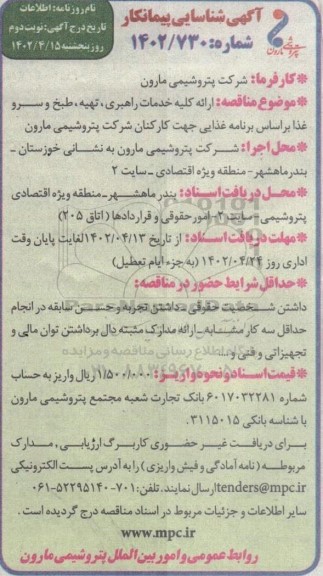 نام روزنامه: اطلاعات
تاریخ درج آگهی: نوبت دوم
روز پنجشنبه ۱۴۰۲/۴/۱۵
آگهی شناسایی پیمانکار
شماره: ۱۴۰۲/۷۳۰
کارفرما: شرکت پتروشیمی مارون
موضوع مناقصه: ارائه کلیه خدمات راهبری، تهیه، طبخ و سرو
غذا براساس برنامه غذایی جهت کارکنان شرکت پتروشیمی مارون
محل اجرا: شرکت پتروشیمی مارون به نشانی خوزستان -
بندرماهشهر - منطقه ویژه اقتصادی - سایت ۲
محل دریافت اسناد: بندر ماهشهر - منطقه ویژه اقتصادی
پتروشیمی - سایت ۲ - امور حقوقی و قراردادها (اتاق ۲۰۵)
مهلت دریافت اسناد: از تاریخ ۱۴۰۲/۰۴/۱۳ لغایت پایان وقت
اداری روز ۱۴۰۲/۰۴/۲۴ (به جزء ایام تعطیل)
حداقل شرایط حضور در مناقصه:
داشتن شخصیت حقوقی - داشتن تجربه و حسن سابقه در انجام
حداقل سه کار مشابه - ارائه مدارک مثبته دال برداشتن توان مالی و
تجهیزاتی و فنی و...
قیمت اسناد و نحوه واریز: ۱/۵۰۰/۰۰۰ ریال واریز به حساب
شماره ۶۰۱۷۰۳۲۲۸۱ بانک تجارت شعبه مجتمع پتروشیمی مارون
با شناسه بانکی ۳۱۱۵۰۱۵.
برای دریافت غیر حضوری کاربرگ ارزیابی، مدارک
مربوطه (نامه آمادگی و فیش واریزی) را به آدرس پست الکترونیکی
tenders@mpc.ir ارسال نمایند. تلفن: ۷۰۱-۵۲۲۹۵۱۴۰-۰۶۱
سایر اطلاعات و جزئیات مربوط در اسناد مناقصه درج گردیده است.
www.mpc.ir
روابط عمومی و امور بین الملل پتروشیمی مارون